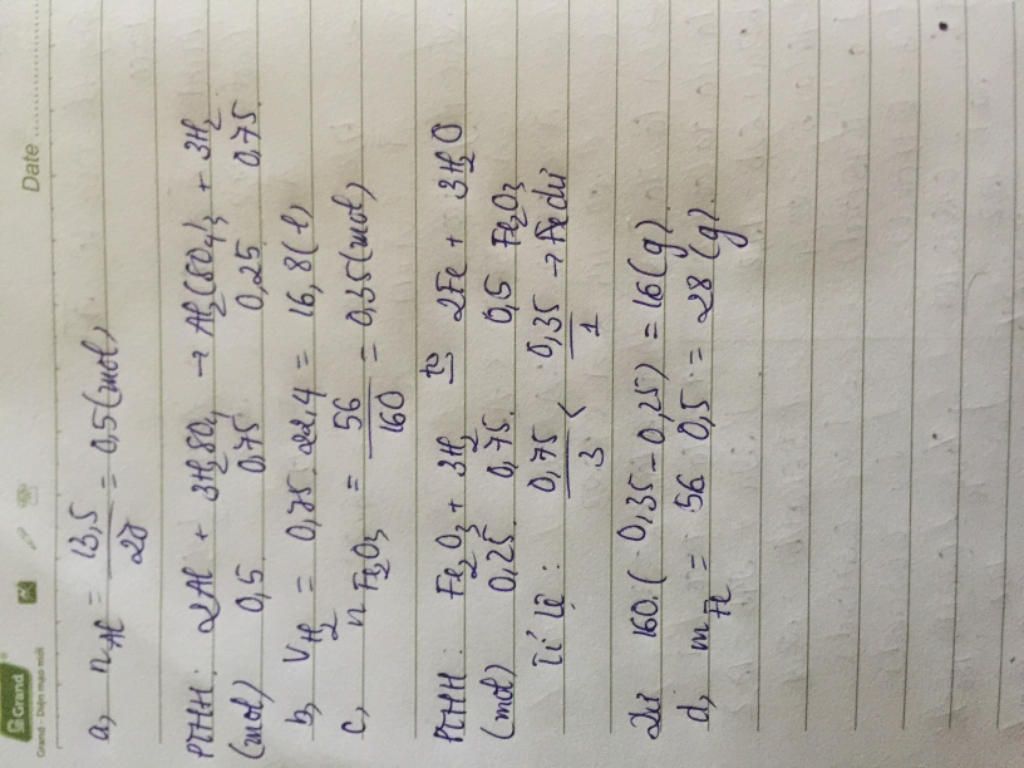 Grand
Grand - Diện mạo mới
Date
a, nAl = 13,5 / 27 = 0,5 (mol)
PTHH: 2Al + 3H2SO4 → Al2(SO4)3 + 3H2
(mol) 0,5 0,75 0,25 0,75
b, VH2 = 0,75. 22,4 = 16,8 (l)
c, nFe2O3 = 56 / 160 = 0,35 (mol)
PTHH: Fe2O3 + 3H2 to 2Fe + 3H2O
(mol) 0,25 0,75 0,5 Fe2O3
Tỉ lệ: 0,75 / 3 < 0,35 / 1 → Fe dư
160.( 0,35 - 0,25) = 16 (g)
d, mFe = 56 0,5 = 28 (g).